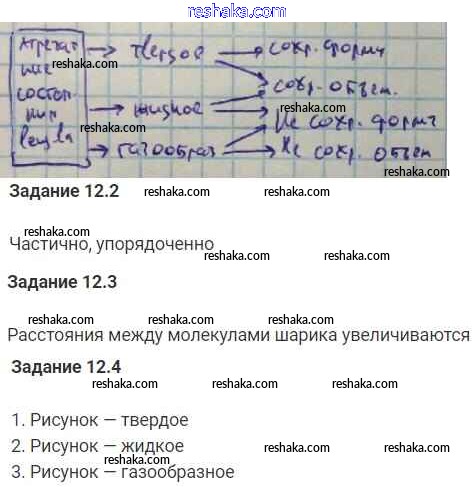 reshaka.com
Агрегат твердое сохр. форму
ные reshaka.com reshaka.com
состоя сохр. объем.
ния жидкое reshaka.com
вещ-ва reshaka.com Не сохр. форму
газообраз Не сохр. объем
reshaka.com
Задание 12.2 reshaka.com reshaka.com
Частично, упорядоченно
reshaka.com reshaka.com
Задание 12.3
reshaka.com reshaka.com reshaka.com
Расстояния между молекулами шарика увеличиваются
Задание 12.4 reshaka.com
reshaka.com reshaka.com
1. Рисунок — твердое
2. Рисунок — жидкое reshaka.com reshaka.com
3. Рисунок — газообразное
reshaka.com